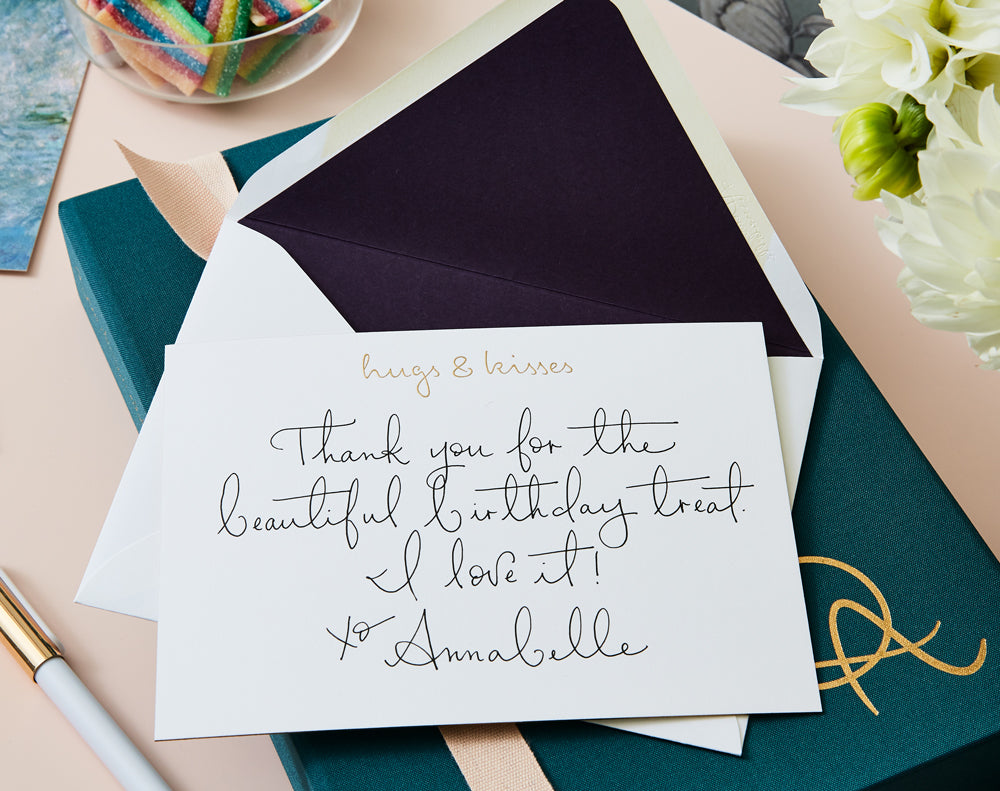 hugs & kisses
Thank you for the
beautiful birthday treat.
I love it!
xo Annabelle